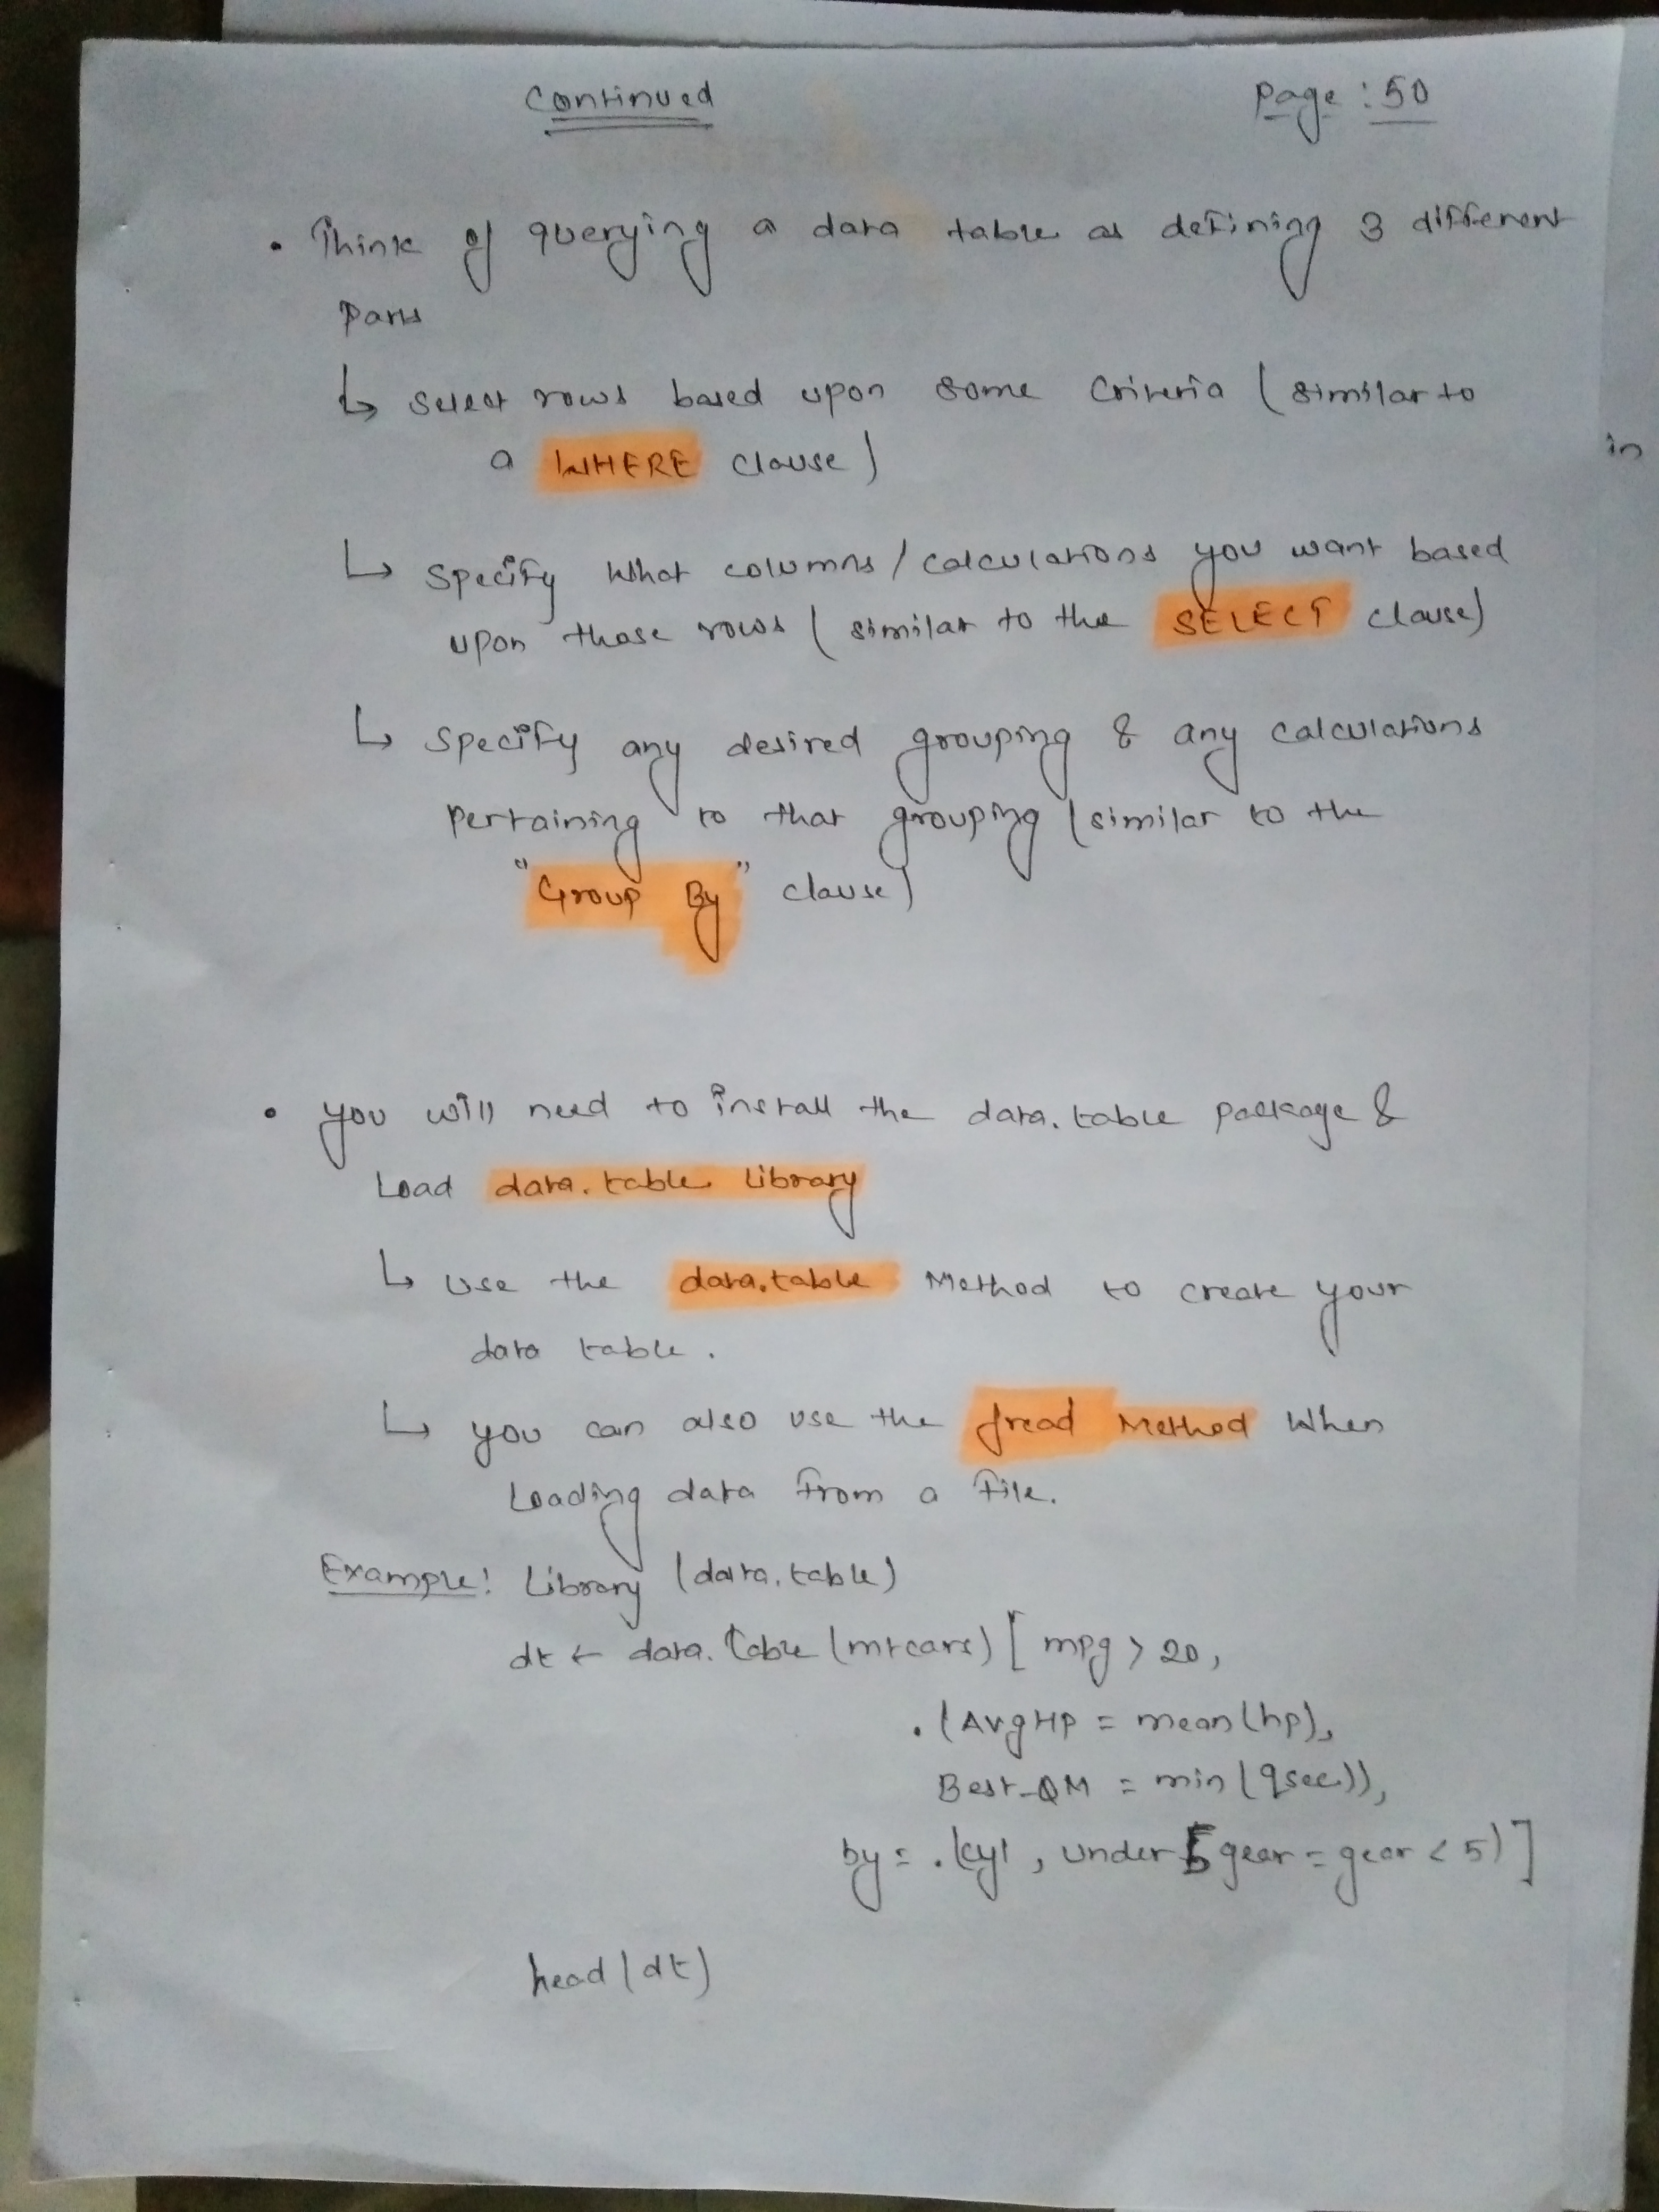 Continued
Page : 50
• Think of querying a data table as defining 3 different
Parts
↳ Select rows based upon some Criteria ( similar to
a WHERE clause )
in
↳ Specify What columns / calculations you want based
upon those rows ( similar to the SELECT clause)
↳ Specify any desired grouping & any calculations
Pertaining to that grouping ( similar to the
"Group By" clause)
• you will need to install the data.table package &
Load data.table Library
↳ Use the data.table Method to create your
data table.
↳ you can also use the fread Method When
Loading data from a file.
Example: Library (data.table)
dt ← data.table (mtcars) [ mpg > 20,
.(AvgHP = mean(hp),
Best_QM = min(qsec)),
by = .(cyl, under5gear = gear < 5)]
head(dt)